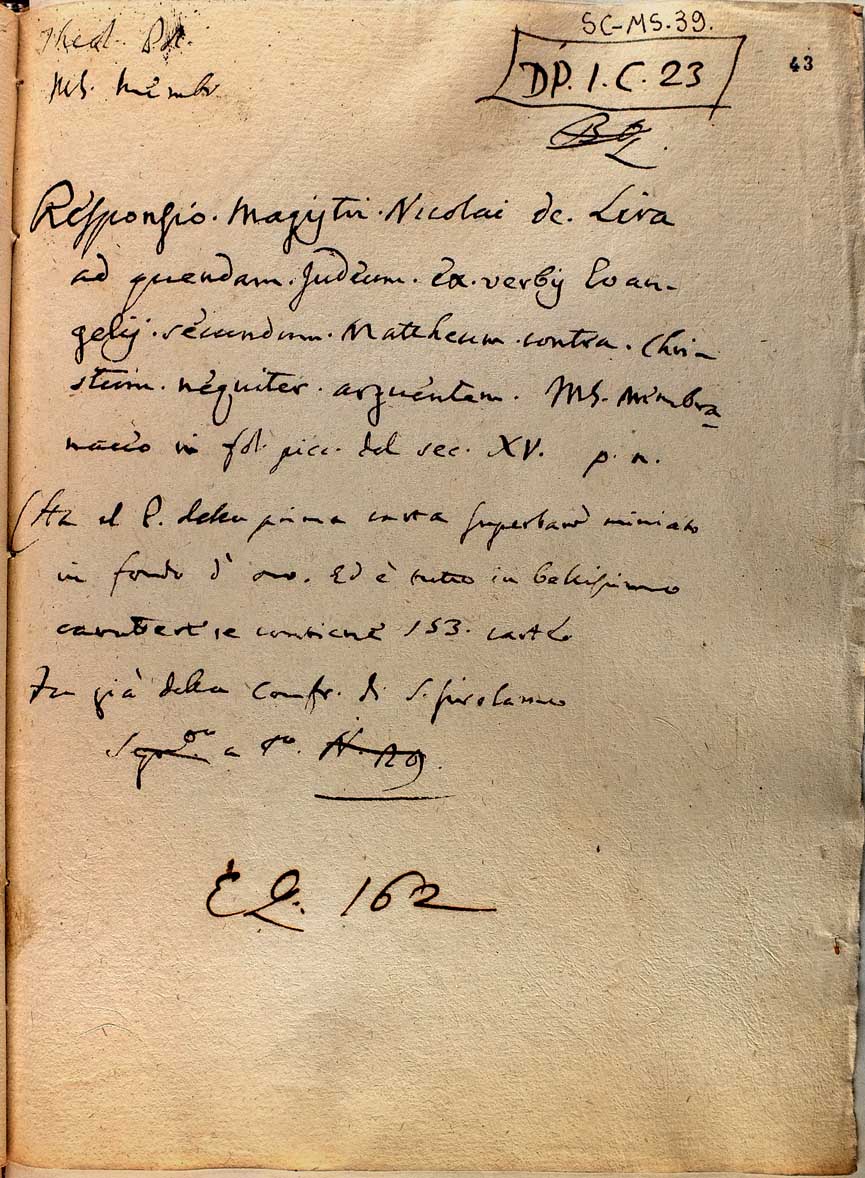 SC-MS.39.
43
DP. I. C. 23
MS. Membr
Responsio. Magistri. Nicolai de. Lira
ad quendam. Judeum. ex. verbis Evan-
gelij. secundum. Mattheum. contra. Chri-
stum. nequiter. arguentem. MS. Membra-
naceo in fol. picc. del sec. XV. p. n.
(Ha il P. della prima carta superbam miniato
in fondo d'oro. Ed è tutto in bellissimo
carattere, e contiene 153. carte
Fu già della Confr. di S. Girolamo
E L. 162